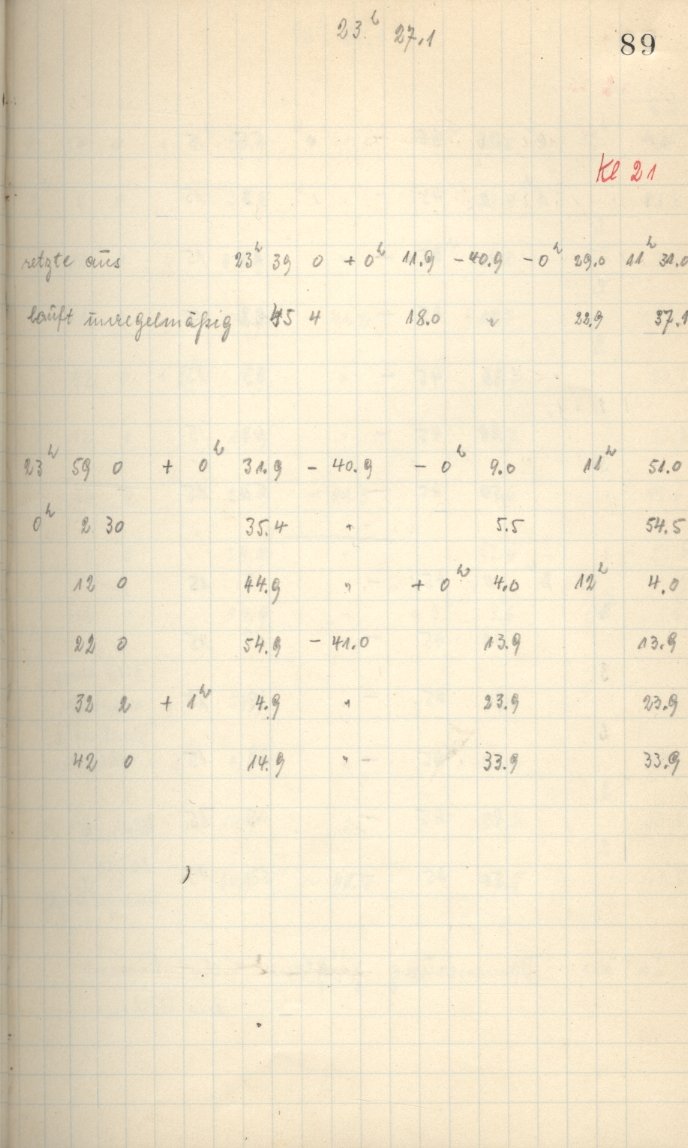 23ʰ 27.1
89
Kl 21
setzte aus 23ʰ 39 0 + 0ʰ 11.9 - 40.9 - 0ʰ 29.0 11ʰ 31.0
läuft unregelmäßig 45 4 18.0 " 22.9 37.1
23ʰ 59 0 + 0ʰ 31.9 - 40.9 - 0ʰ 9.0 11ʰ 51.0
0ʰ 2 30 35.4 " 5.5 54.5
12 0 44.9 " + 0ʰ 4.0 12ʰ 4.0
22 0 54.9 - 41.0 13.9 13.9
32 2 + 1ʰ 4.9 " 23.9 23.9
42 0 14.9 " - 33.9 33.9